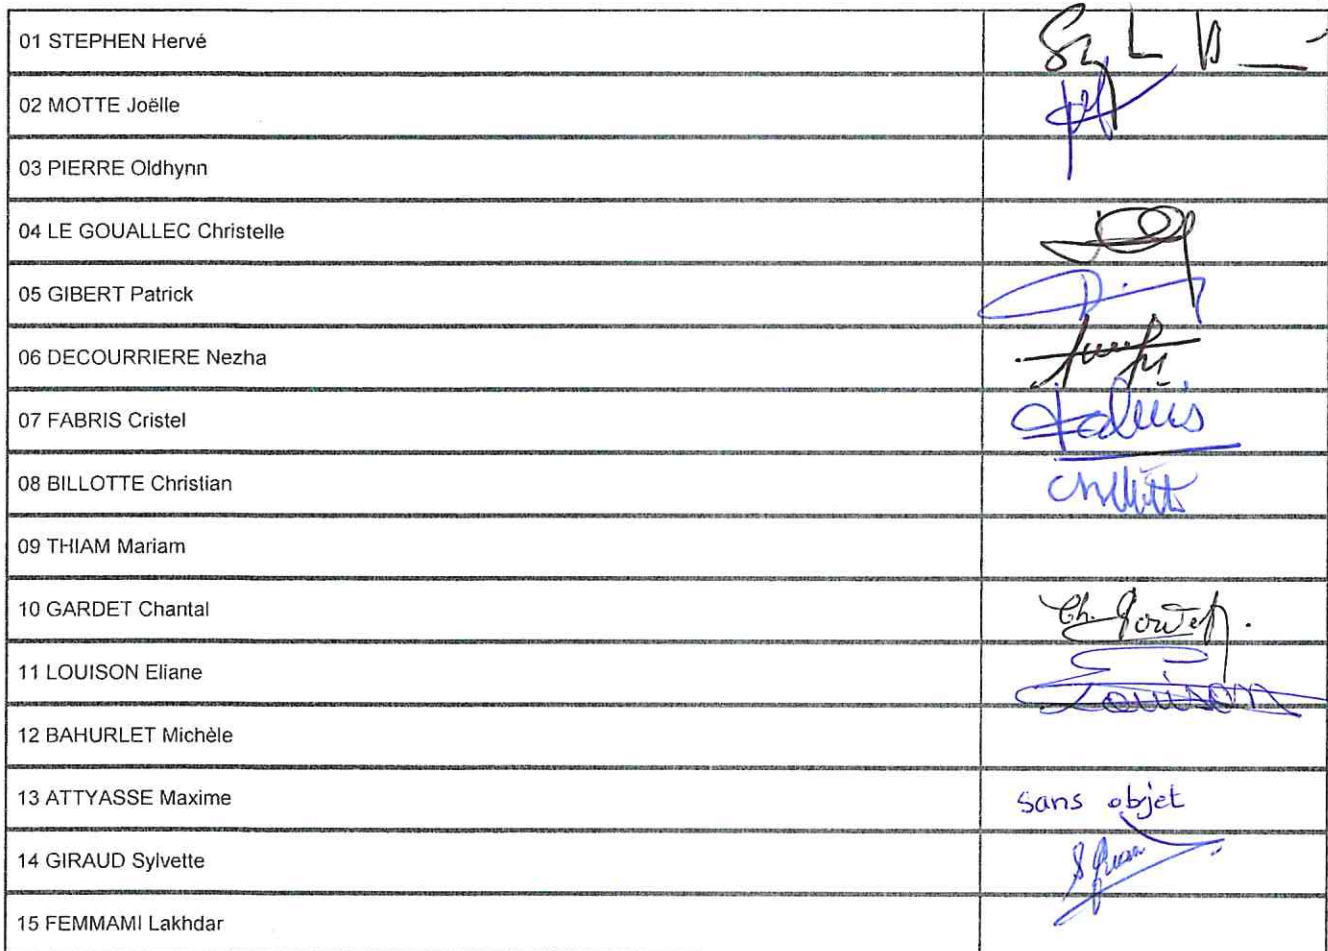 01 STEPHEN Hervé
02 MOTTE Joëlle
03 PIERRE Oldhynn
04 LE GOUALLEC Christelle
05 GIBERT Patrick
06 DECOURRIERE Nezha
07 FABRIS Cristel
08 BILLOTTE Christian
09 THIAM Mariam
10 GARDET Chantal
Ch.
11 LOUISON Eliane
Louison
12 BAHURLET Michèle
13 ATTYASSE Maxime
sans objet
14 GIRAUD Sylvette
15 FEMMAMI Lakhdar